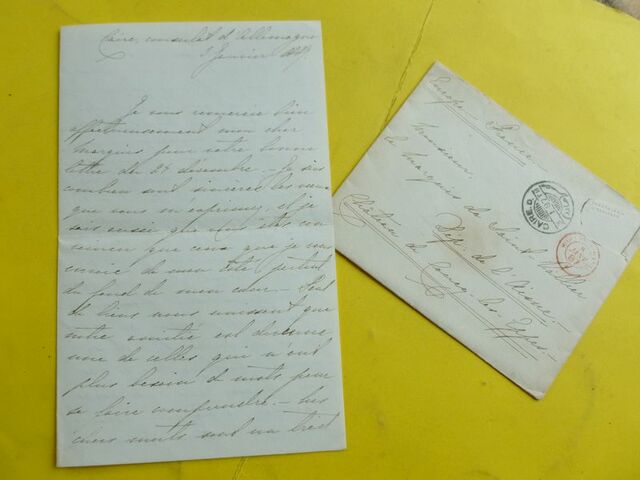 Caire, consulat d'Allemagne
Janvier
Je vous remercie bien
affectueusement mon cher
marquis pour votre bonne
lettre du 24 décembre. - Je sais
combien sont sincères les vœux
que vous m'exprimez et je
sais aussi que vous êtes con-
vaincu que ceux que je vous
envoie de mon côté partent
du fond de mon cœur. - Tant
de liens nous unissent que
notre amitié est devenue
une de celles qui n'ont
plus besoin de mots pour
se faire comprendre. - Les
chers morts sont un trait
Europe France
Monsieur
le marquis de Saint Vallier
Château de Coucy-les-Eppes
Dép. de l'Aisne.
CAIRE